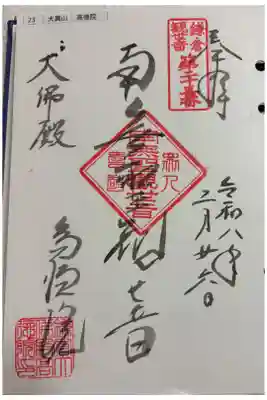 23 大異山 高徳院
奉拝
令和八年
二月廿六日
鎌倉
観世音
第廿三番
南無聖観世音
大佛殿
高徳院